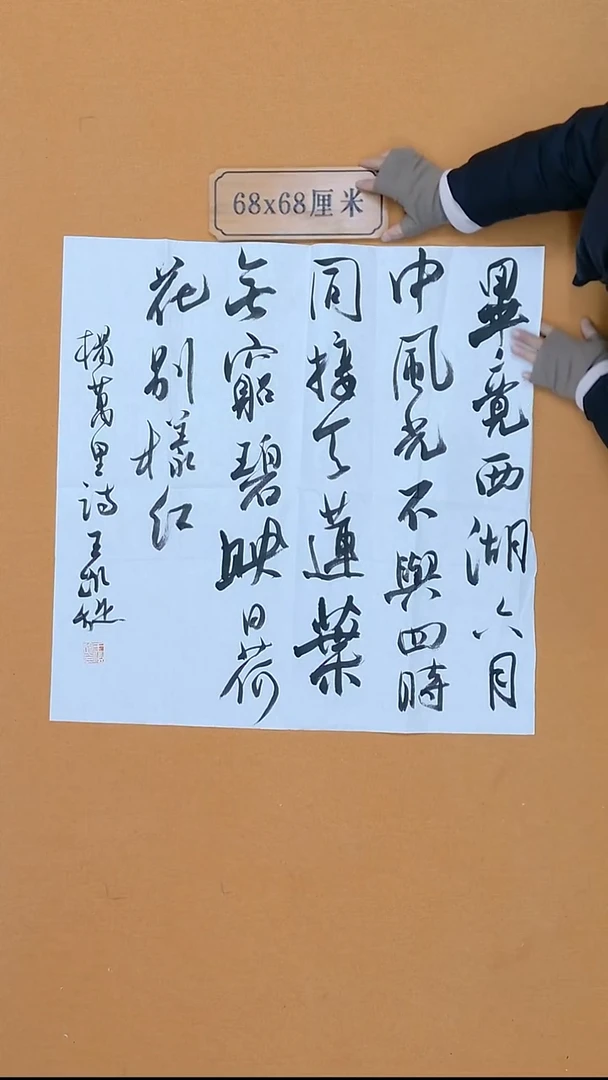 68x68厘米
畢竟西湖六月
中風光不與四時
同接天蓮葉
無窮碧映日荷
花別樣紅
楊萬里詩 王